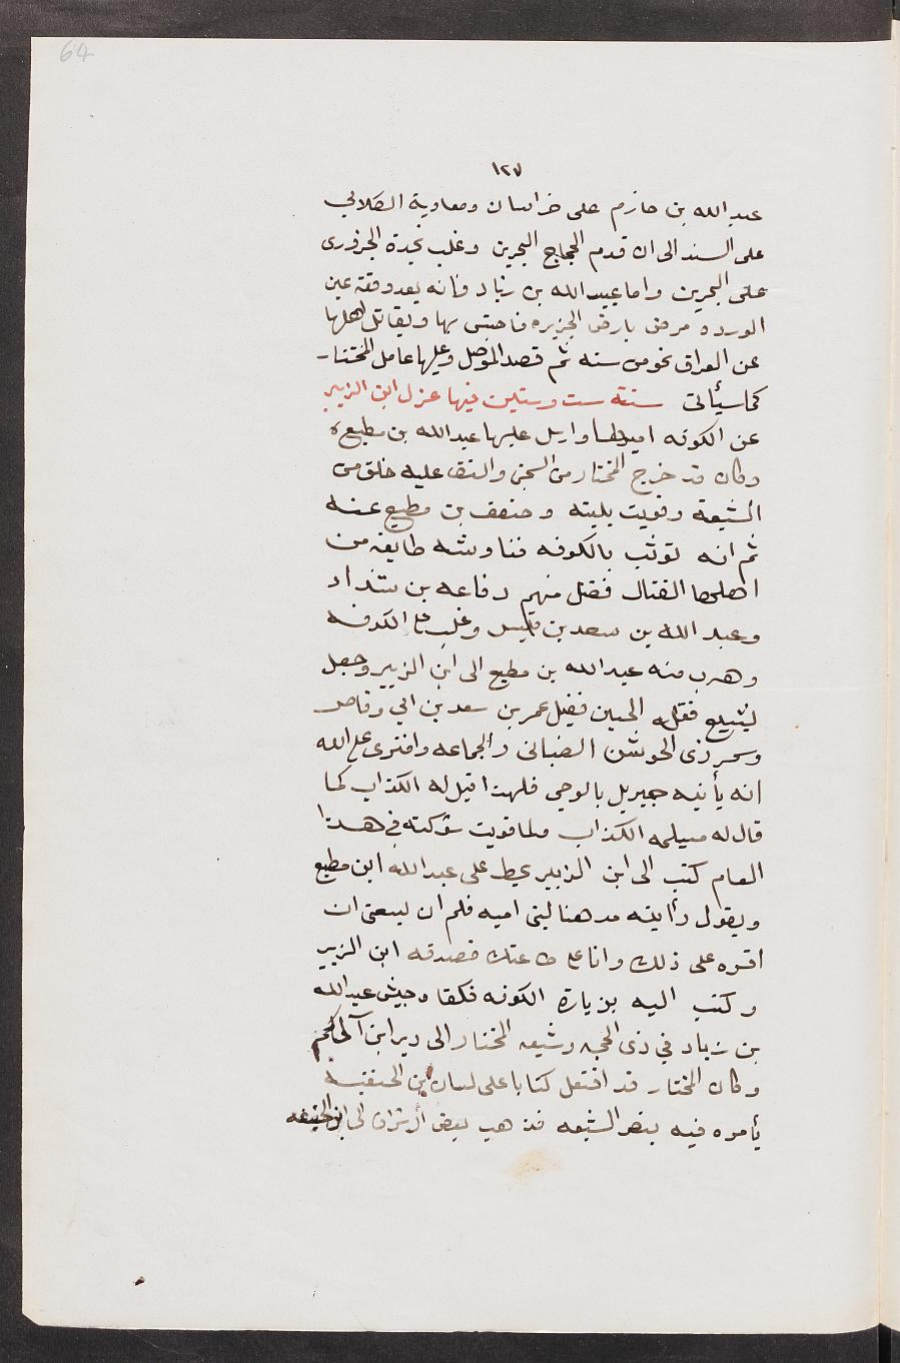 64
١٢٧
عبد الله بن حازم على خراسان ومعاوية الكلابي
على السند الى ان قدم الحجاج البحرين وغلب نجدة الحروري
على البحرين واما عبيد الله بن زياد فانه بعد وقعة عين
الورده مرض بارض الجزيره فاحتبس بها ويقاتل اهلها
عن العراق نحو من سنه ثم قصد الموصل وعليها عامل المختار
كما سيأتى سنة ست وستين فيها عزل ابن الزبير
عن الكوفه اميرها وارسل عليها عبد الله بن مطيع
وكان قد خرج المختار من السجن والتف عليه خلق من
الشيعة وقويت بليته وضعف بن مطيع عنه
ثم انه توثب بالكوفه فناوشه طايفه من
اهلها القتال فقتل منهم رفاعه بن شداد
وعبد الله بن سعد بن قيس وغلب على الكوفه
وهرب منه عبد الله بن مطيع الى ابن الزبير وجعل
يتتبع قتلة الحسين فقتل عمر بن سعد بن ابي وقاص
وشمر ذى الجوشن الضبانى والجماعه وافترى على الله
انه يأتيه جبريل بالوحى فلهذا قيل له الكذاب كما
قال له مسيلمه الكذاب ولما قويت شوكته فى هذا
العام كتب الى ابن الزبير يحط على عبد الله ابن مطيع
ويقول رأيته مدهنا لبنى اميه فلم ان يسعنى ان
اقره على ذلك وانا على طاعتك فصدقه ابن الزبير
وكتب اليه بزيارة الكوفه فكفاه جيش عبيد الله
بن زياد في ذى الحجه وشيعه المختار الى دير ابن آلحاكم
وكان المختار قد افتعل كتابا على لسان ابن الحنفيه
يأمره فيه بنصر الشيعه فذهب بعض الاشراف الى ابن الحنفيه